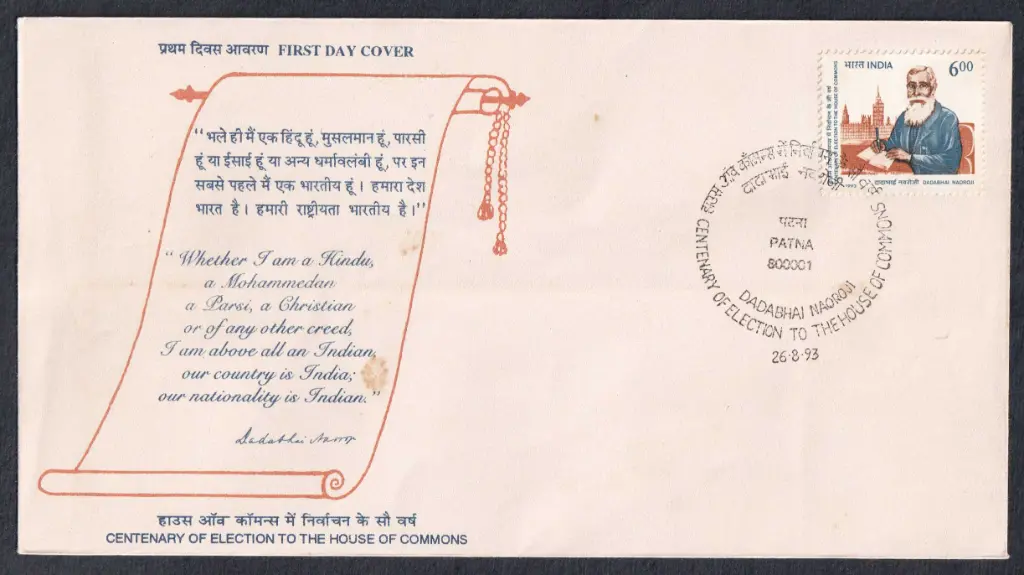 प्रथम दिवस आवरण FIRST DAY COVER
"भले ही मैं एक हिंदू हूं, मुसलमान हूं, पारसी
हूं या ईसाई हूं या अन्य धर्मावलंबी हूं, पर इन
सबसे पहले मैं एक भारतीय हूं। हमारा देश
भारत है। हमारी राष्ट्रीयता भारतीय है।"
"Whether I am a Hindu,
a Mohammedan
a Parsi, a Christian
or of any other creed,
I am above all an Indian,
our country is India;
our nationality is Indian."
Dadabhai Naoroji
हाउस ऑव कॉमन्स में निर्वाचन के सौ वर्ष
CENTENARY OF ELECTION TO THE HOUSE OF COMMONS
भारत INDIA 600
हाउस ऑव कॉमन्स में निर्वाचन के सौ वर्ष
CENTENARY OF ELECTION TO THE HOUSE OF COMMONS
1993 दादाभाई नवरोजी DADABHAI NAOROJI
हाउस ऑव कॉमन्स में निर्वाचन के सौ वर्ष
दादाभाई नवरोजी
पटना
PATNA
800001
DADABHAI NAOROJI
CENTENARY OF ELECTION TO THE HOUSE OF COMMONS
26.8.93